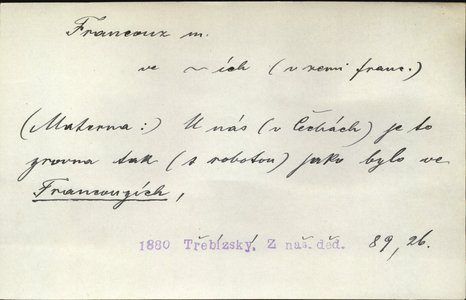 Francouz m.
ve ~ích (v zemi franc.)
(Materna:) U nás (v Čechách) je to
zrovna tak (s robotou) jako bylo ve
Francouzích,
1880 Třebízský, Z náš. děd. 89, 26.